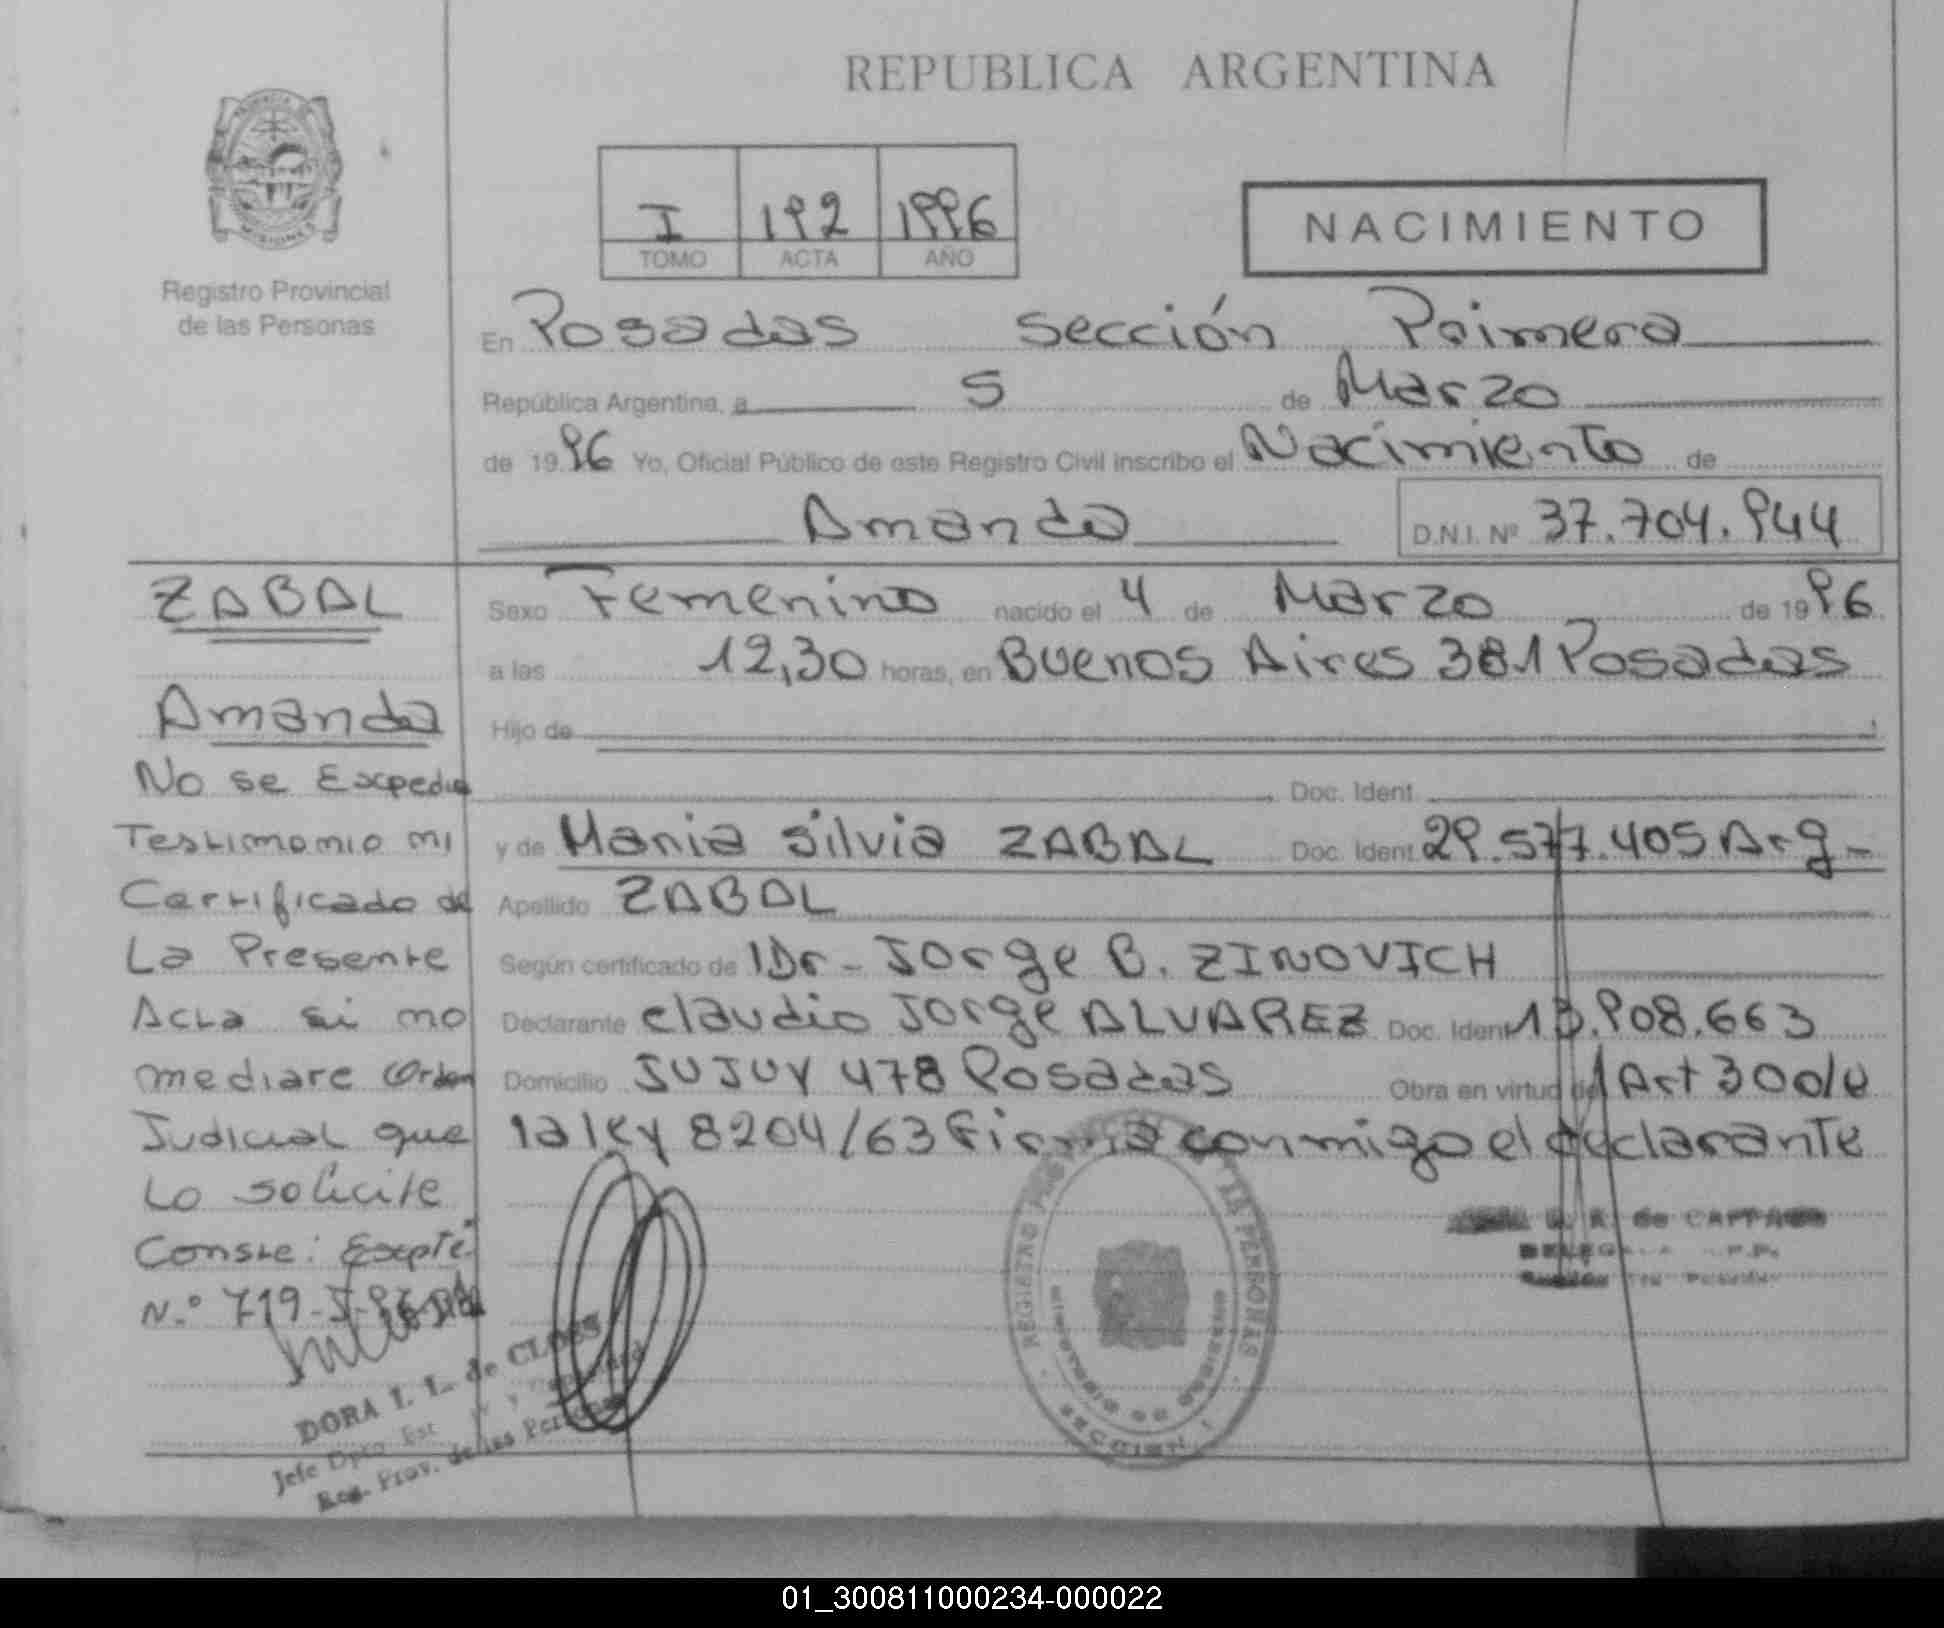 REPUBLICA ARGENTINA
I 192 1996
TOMO ACTA AÑO
NACIMIENTO
Registro Provincial
de las Personas
En Posadas sección Primera
República Argentina, a 5 de Marzo
de 1996 Yo, Oficial Público de este Registro Civil inscribo el Nacimiento de
Amanda D.N.I. Nº 37.704.944
ZABAL
Amanda
No se Expedia
Testimonio ni
Certificado de
La Presente
Acta si no
mediare Orden
Judicial que
Lo solicite
Conste: Expte
N.º 719-
DORA I. L. de CLOSS
Jefe Dpto. Est
Reg. Prov. de las Personas
Sexo Femenino nacido el 4 de Marzo de 1996
a las 12,30 horas, en Buenos Aires 381 Posadas
Hijo de
Doc. Ident.
y de Maria Silvia ZABAL Doc. Ident. 29.577.405 Arg-
Apellido ZABAL
Según certificado de Dr- Jorge B. ZINOVICH
Declarante claudio Jorge ALVAREZ Doc. Ident 13.908.663
Domicilio JUJUY 478 Posadas Obra en virtud del Art 30 de
la ley 8204/63 Firma conmigo el declarante
REGISTRO PROVINCIAL DE LAS PERSONAS
SECCION 1
de CAPPA
01_300811000234-000022